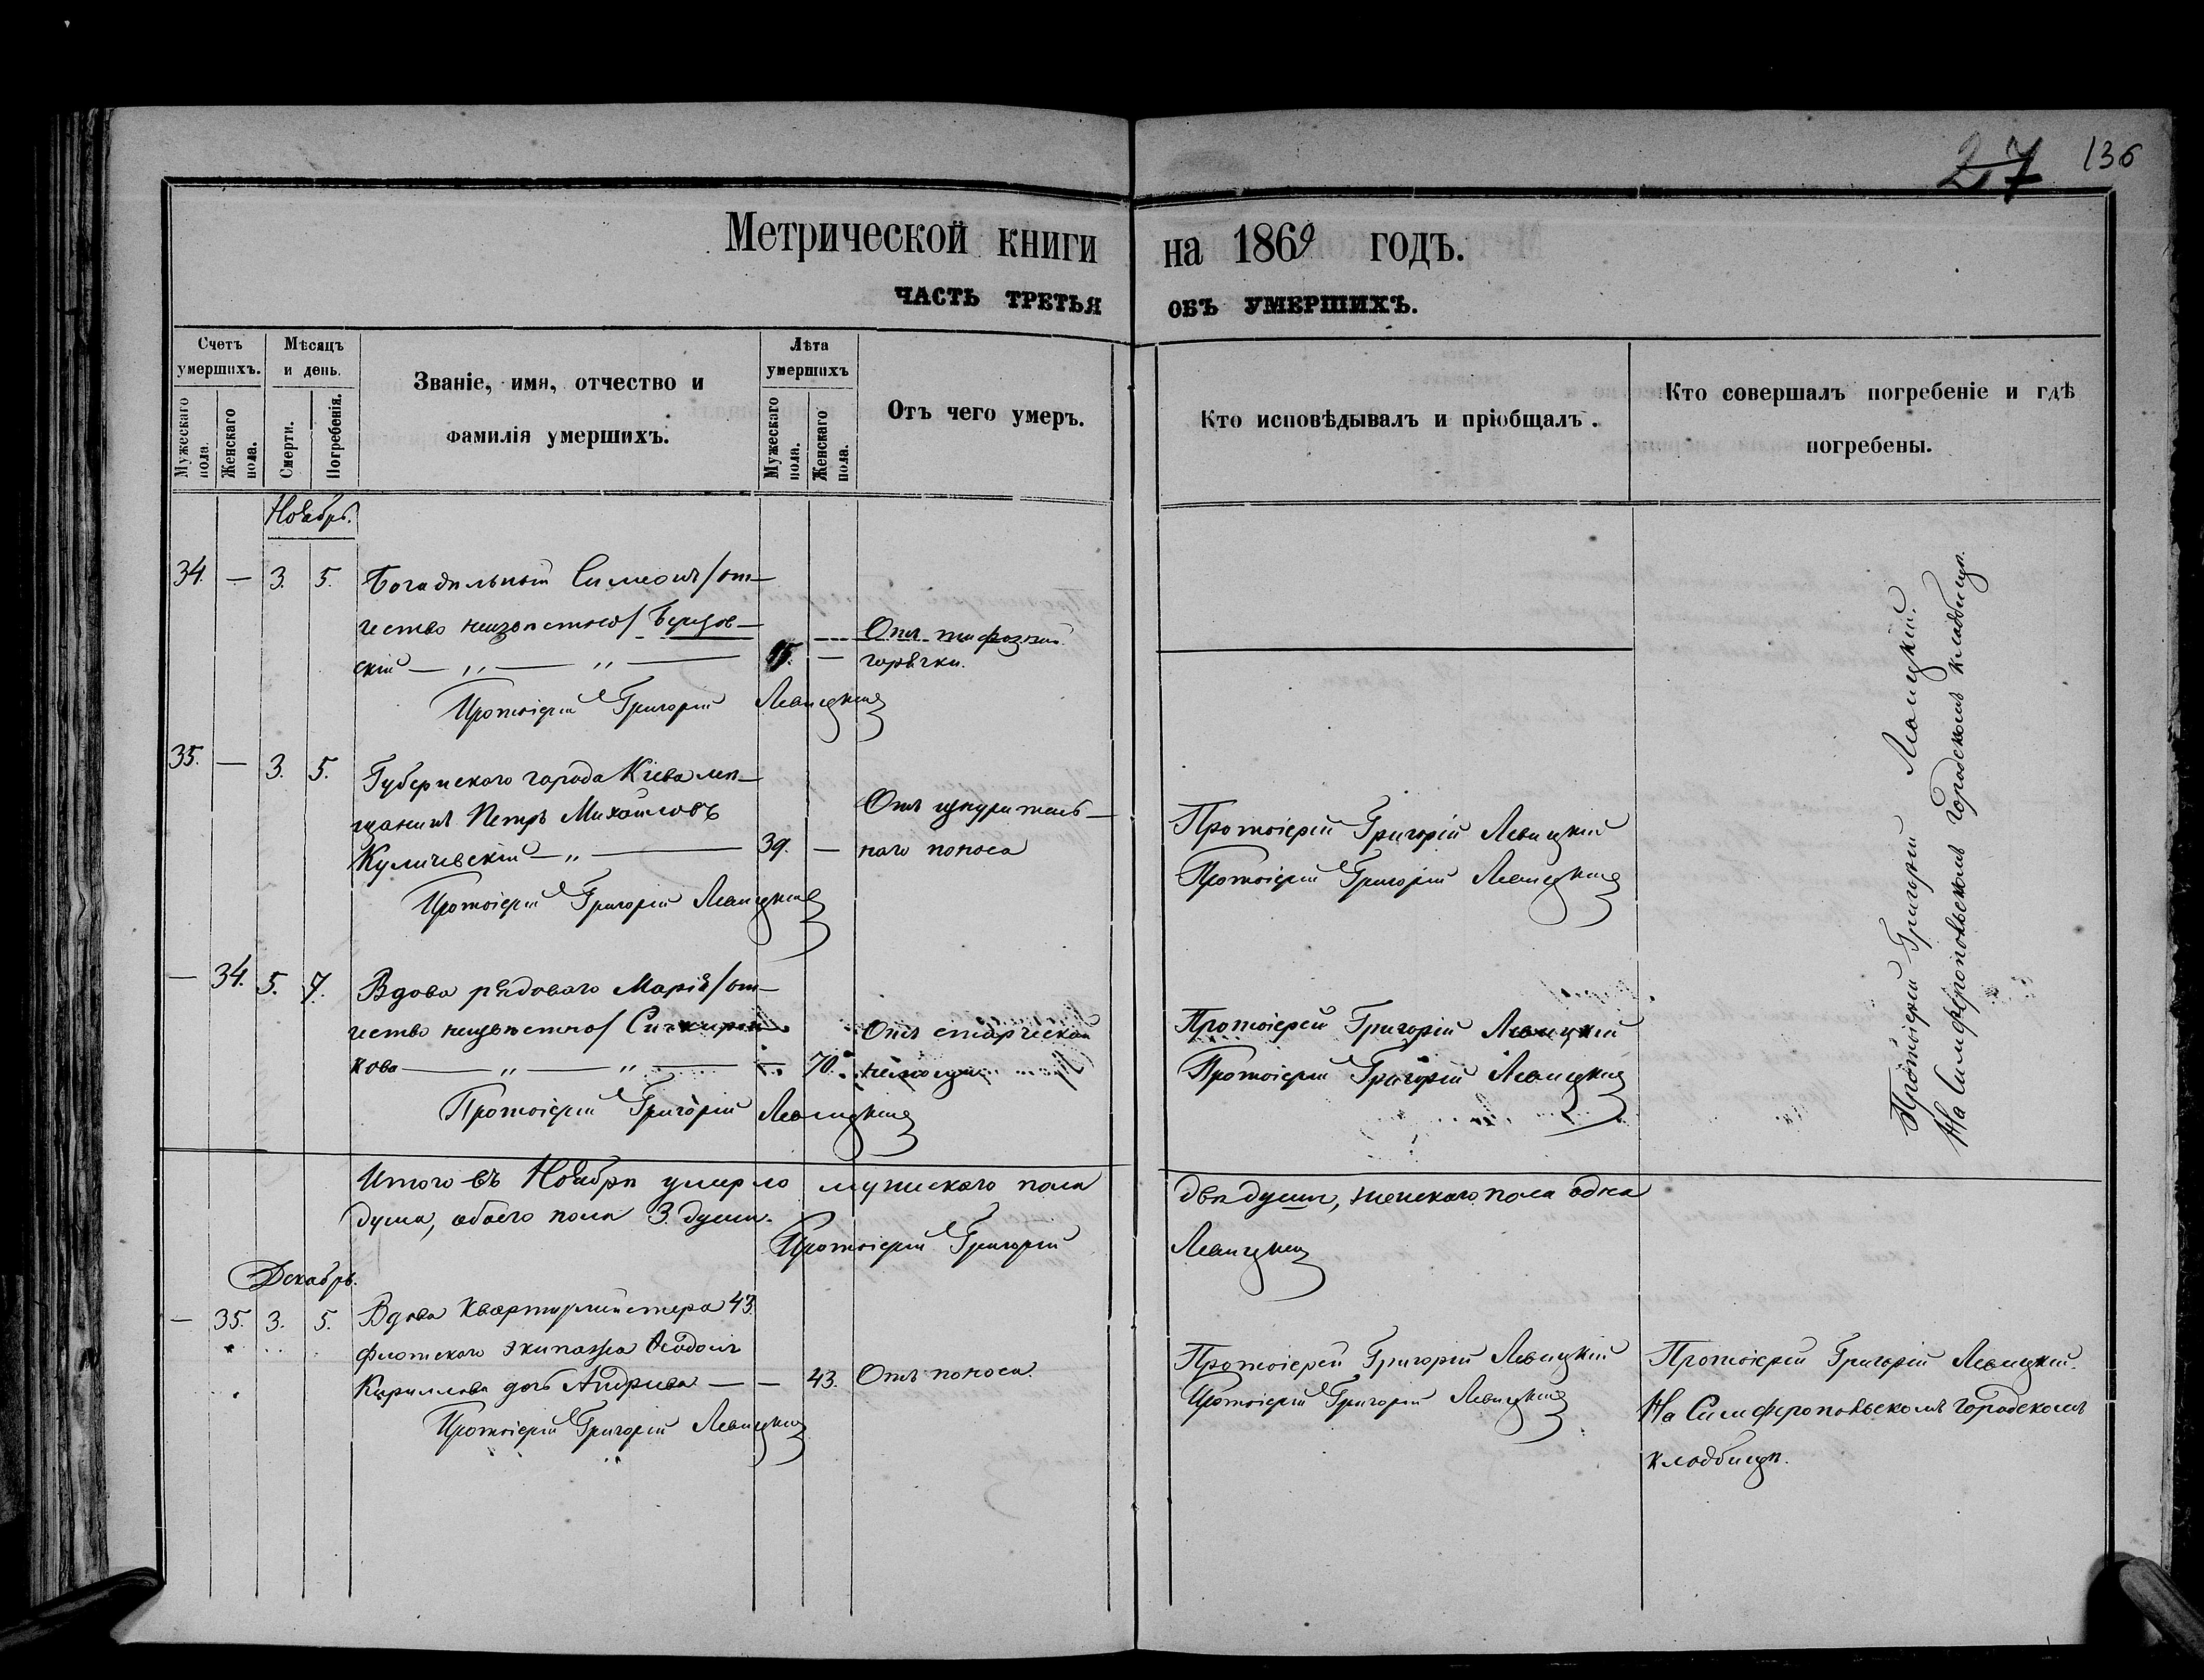 27 136
Метрической книги на 1869 годъ.
ЧАСТЬ ТРЕТЬЯ ОБЪ УМЕРШИХЪ.
Счетъ умершихъ.
Мужескаго пола.
Женскаго пола.
Мѣсяцъ и день.
Смерти.
Погребенія.
Званіе, имя, отчество и
фамилія умершихъ.
Лѣта умершихъ
Мужескаго пола.
Женскаго пола.
Отъ чего умеръ.
Кто исповѣдывалъ и пріобщалъ.
Кто совершалъ погребеніе и гдѣ
погребены.
Ноябрь.
34. — 3. 5. Богадѣльный Симеонъ /от-
чество неизвѣстно/
скій — „ — „ — — Отъ тифозной
горячки.
Протоіерей Григорій Левицкій
35. — 3. 5. Губернскаго города Кіева мѣ-
щанинъ Петръ Михайловъ
Куличевскій — „ — 39. — Отъ изнуритель-
наго поноса
Протоіерей Григорій Левицкій
Протоіерей Григорій Левицкій
Протоіерей Григорій Левицкій
— 34. 5. 7. Вдова рядоваго Марія /от-
чество неизвѣстно/
кова — „ — „ — — 70. Отъ старческой
немощи
Протоіерей Григорій Левицкій
Протоіерей Григорій Левицкій
Протоіерей Григорій Левицкій
Протоіерей Григорій Левицкій.
На Симферопольскомъ городскомъ кладбищѣ.
Итого въ Ноябрѣ умерло мужескаго пола двѣ души, женскаго пола одна
душа, обоего пола 3 души.
Протоіерей Григорій Левицкій
Декабрь.
— 35. 3. 5. Вдова квартирмейстера 43
флотскаго экипажа Ѳеодосія
Кириллова дочь Андреева — — 43. Отъ поноса.
Протоіерей Григорій Левицкій
Протоіерей Григорій Левицкій
Протоіерей Григорій Левицкій
Протоіерей Григорій Левицкій.
На Симферопольскомъ городскомъ
кладбищѣ.